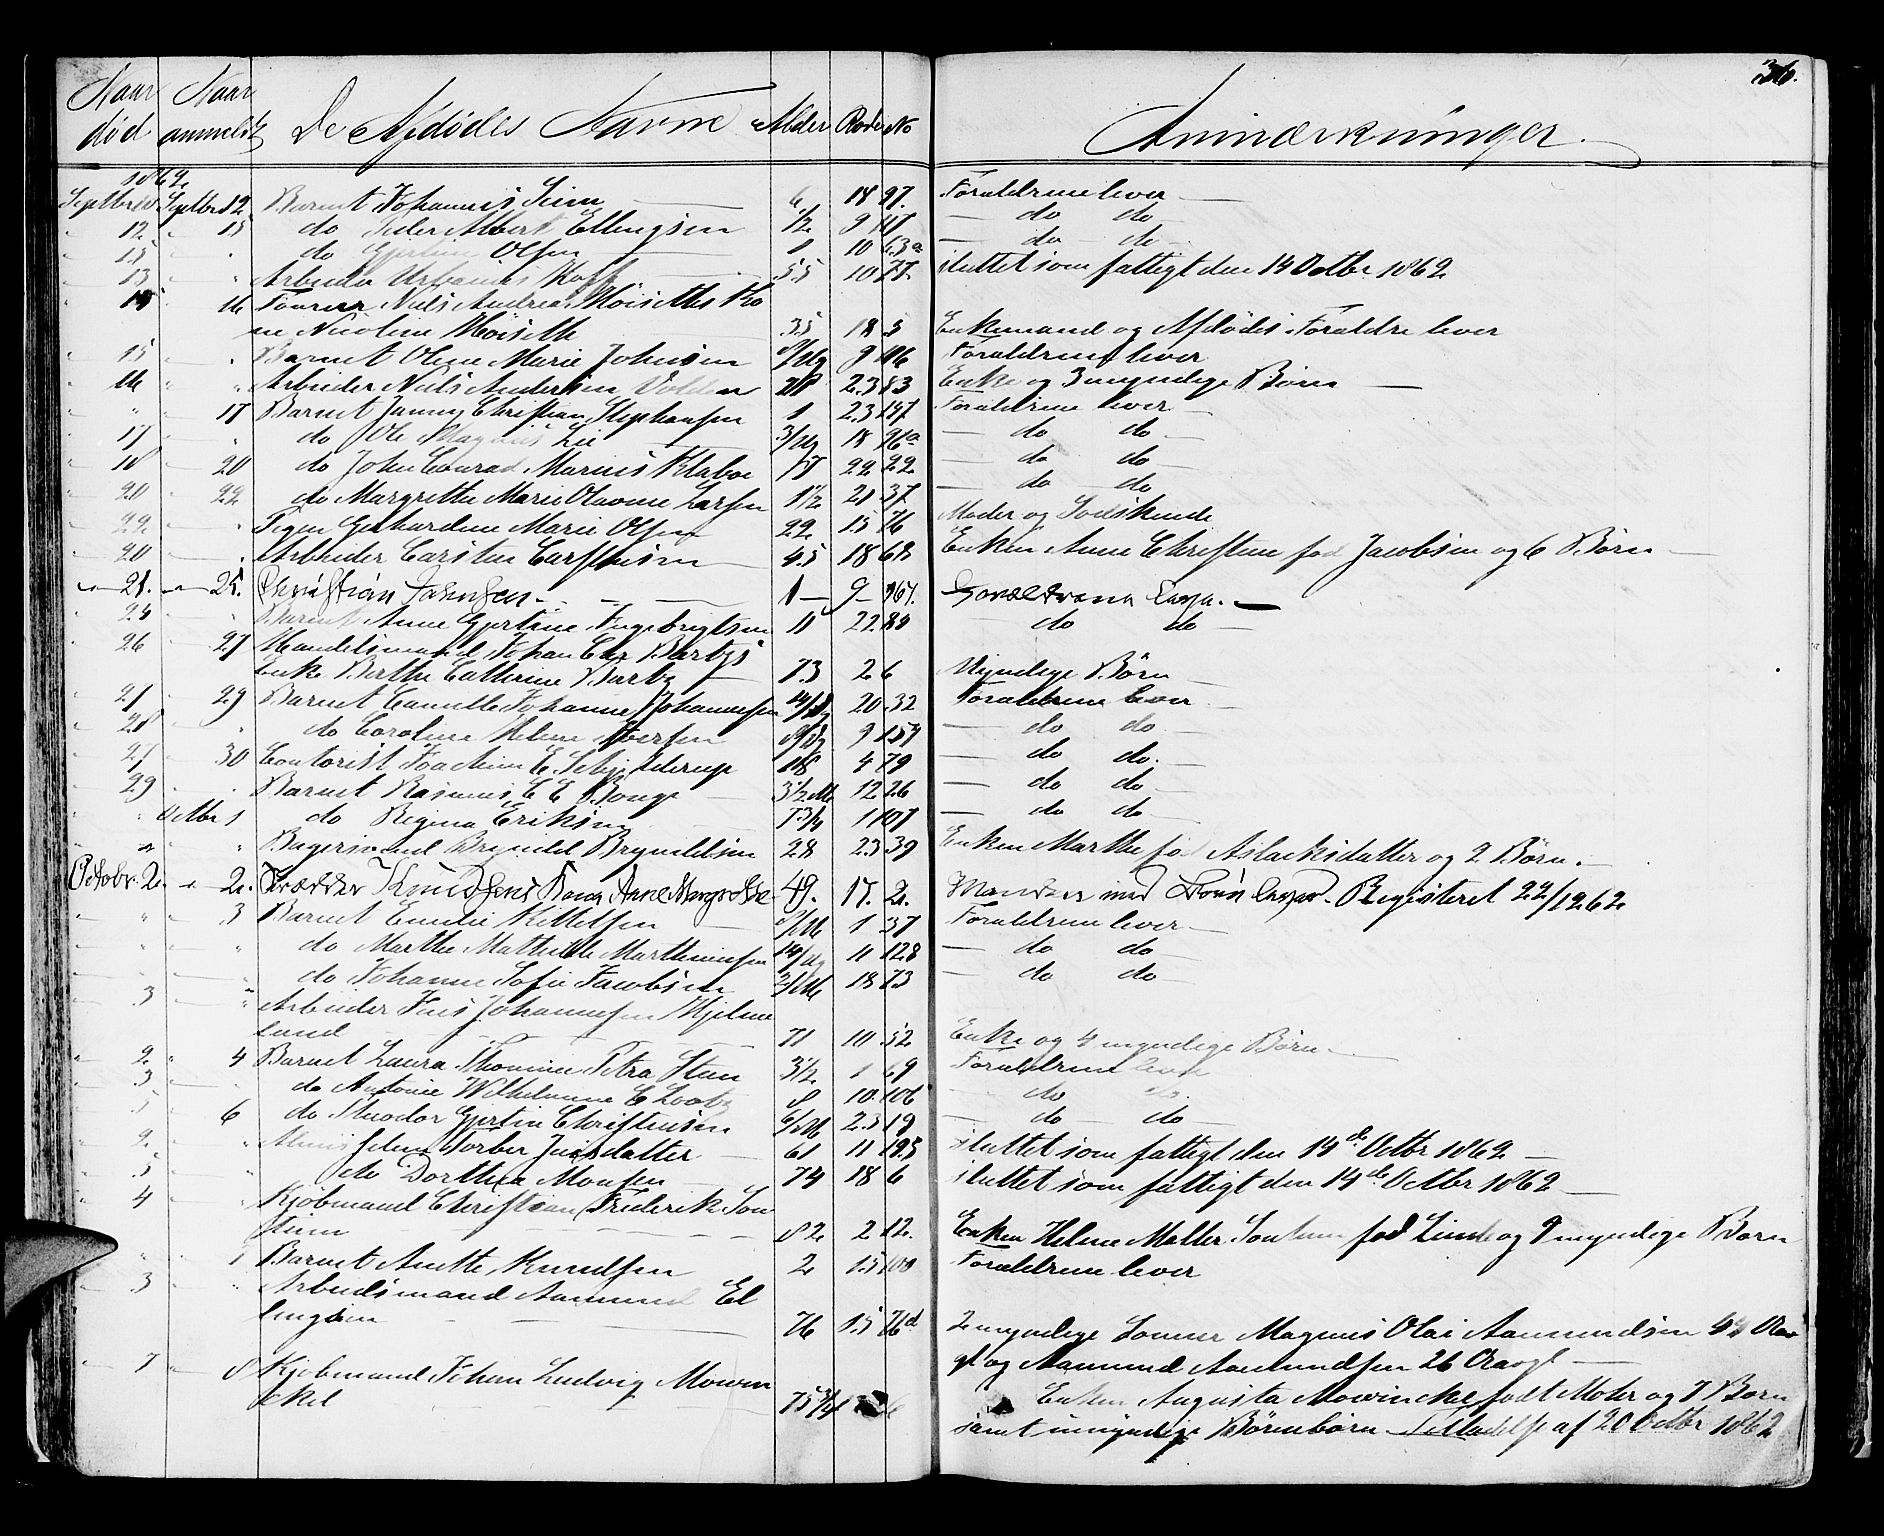 36.
Naar død Naar anmeldt De Afdødes Navne Alder Rode No Anmærkninger.
1862
Septbr Septbr 12 Barnet Johannes Seim 6 18 97. Forældrene lever
12 " 13 do Peder Albert Ellingsen 1/2 9 do do
13 " do Gjertine Olsen 1 10 63a do do
13 " Arbeider 55 10 77. sluttet som fattigt den 14 Octbr 1862
15 16 Tourer Niels Andreas Høiseths Ko
ne Nicoline Høiseth 35 18 5 Enkemand og Afdødes Forældre lever
15 " Barnet Olene Marie Johnsen 9 Forældrene lever
16 " " Arbeider Niels Andersen 23 83 Enke og 3 myndige Børn
" 17 Barnet Janny Christian Stephansen 1 23 147 Forældrene lever
17 " do Ole Magnus Lie 18 96a do do
18 20 do John Conrad Marius Klaboe 22 22 do do
20 22 do Margrethe Marie Olavine Larsen 1 1/2 21 37 do do
22 " Pigen Gerhardine Marie Olsen 22 15 76 Moder og Sødskende
20 " Arbeider Carsten Carstensen 45 18 68 Enken Anne Christine fød Jacobsen og 6 Børn
" 21. " 25. Christian Johnsen 1 9 167. Forældrene lever.
24 " Barnet Anne Gjertine Ingebrigtsen 11 22 do do
26 27 Handelsmand Johan Barbys
Enke Berthe Catherine Barby 73 2 6 Myndige Børn
27 29 Barnet Camilla Johanne Johannesen 20 32 Forældrene lever
28 " do Caroline Helene Iversen 9 157 do do
27 30 Contorist Joachim E. Schjelderup 18 4 79 do do
29 " Barnet Rasmus C E Bonge 3 1/2 M 12 26 do do
" Octbr 1 do Regina Eriksen 1 107 do do
" " Bagersvend Bryndel Bryndelsen 28 23 39 Enken Marthe fød Aslacksdatter og 2 Børn.
Octobr. 2. " 2. Skrædder Knudsens Kone Anne Margrethe 49. 17. 2. Manden med Børn lever. Registeret 22/12 62
" 3 Barnet Emilie Killetsen 1 37 Forældrene lever
" " do Marthe Mathilde Marthinusen 11 128 do do
" " do Johanne Sofie Jacobsen 3/M 18 73 do do
3 " Arbeider Jens Johannesen Hjelme
land 71 10 52 Enke og 4 myndige Børn
2 " 4 Barnet Laura Thomine Petra Steen 3 1/2 1 69 Forældrene lever
3 " do Antonie Wilhelmine E 8 10 106 do do
5 6 do Theodor Gjertin Christensen 6/M 23 19 do do
2 " Torber Jensdatter 61 11 195 sluttet som fattigt den 14de Octbr 1862
5 " do Dorthea Monsen 74 18 6 sluttet som fattigt den 14de Octbr 1862
4 " Kjøbmand Christian Frederik Son
tum 82 2 12. Enken Helene Møller Sontum fød Lind og 9 myndige Børn
" 7 Barnet Anette Knudsen 2 15 100 Forældrene lever
3 " Arbeidsmand Aamund El
lingsen 76 15 76d 2 myndige Sønner Magnus Olai Aamundsen 42 Aar
gl og Aamund Aamundsen 26 Aar gl
7 8 Kjøbmand Johan Ludvig Mowin
ckel 75 3/4 Enken Augusta Mowinckel født Mohr og 7 Børn
samt umyndige Børnebørn Tilladelse af 20 Octbr 1862